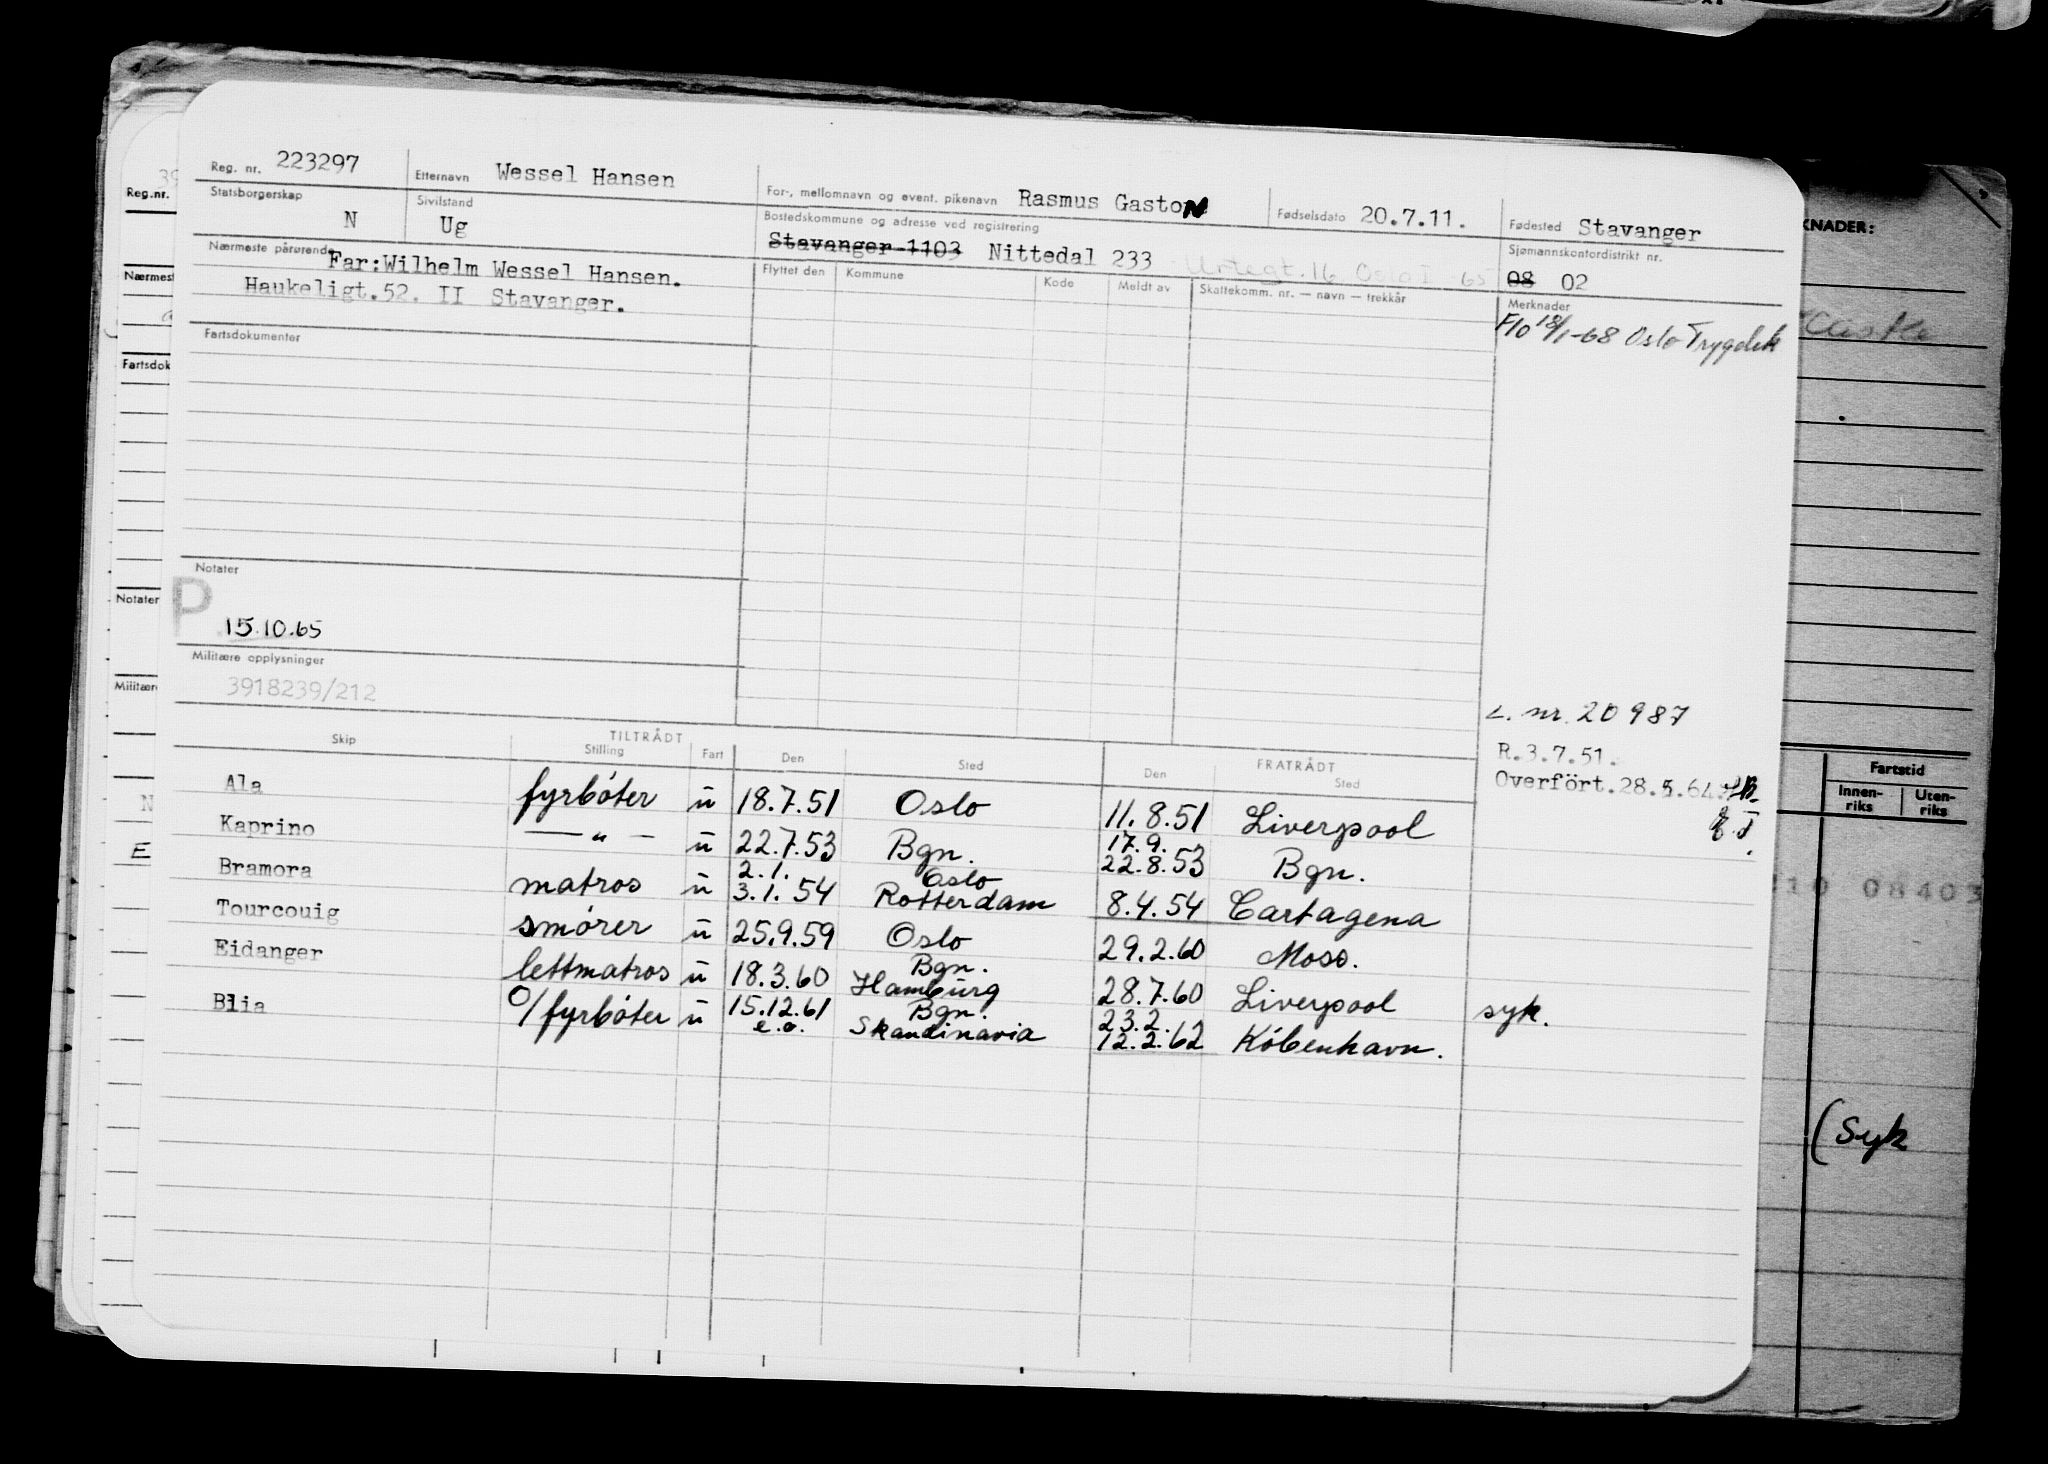 Reg. nr. 223297 Etternavn Wessel Hansen For-, mellomnavn og event. pikenavn Rasmus Gaston Fødselsdato 20.7.11. Fødested Stavanger
Statsborgerskap N Sivilstand Ug Bostedskommune og adresse ved registrering Stavanger 1103 Nittedal 233 Urtegt. 16 Oslo 1 65 Sjømannskontordistrikt nr. 08 02
Nærmeste pårørende Far:Wilhelm Wessel Hansen.
Haukeligt.52. II Stavanger.
Flyttet den Kommune Kode Meldt av Skattekomm. nr. — navn — trekkår Merknader
F10 18/1-68 Oslo Trygdek
Fartsdokumenter
Notater
P
15.10.65
Militære opplysninger
3918239/212
L. nr. 20987
R.3.7.51.
Overfört.28.5.64.
TILTRÅDT FRATRÅDT
Skip Stilling Fart Den Sted Den Sted
Ala fyrböter ü 18.7.51 Oslo 11.8.51 Liverpool
Kaprino — " — ü 22.7.53 Bgn. 17.9. 22.8.53 Bgn.
Bramora matros ü 2.1. 3.1.54 Oslo Rotterdam 8.4.54 Cartagena
Tourcouig smörer ü 25.9.59 Oslo 29.2.60 Moss.
Eidanger lettmatros ü 18.3.60 Bgn. Hamburg 28.7.60 Liverpool syk.
Blia O/fyrböter ü 15.12.61 e.o. Bgn. Skandinavia 23.2. 12.2.62 Köbenhavn.
Reg.nr.
Nærmest
Fartsdok
Notater
Militære
KNADER:
Fartstid
Innen-riks Uten-riks
10 08403
(Syk